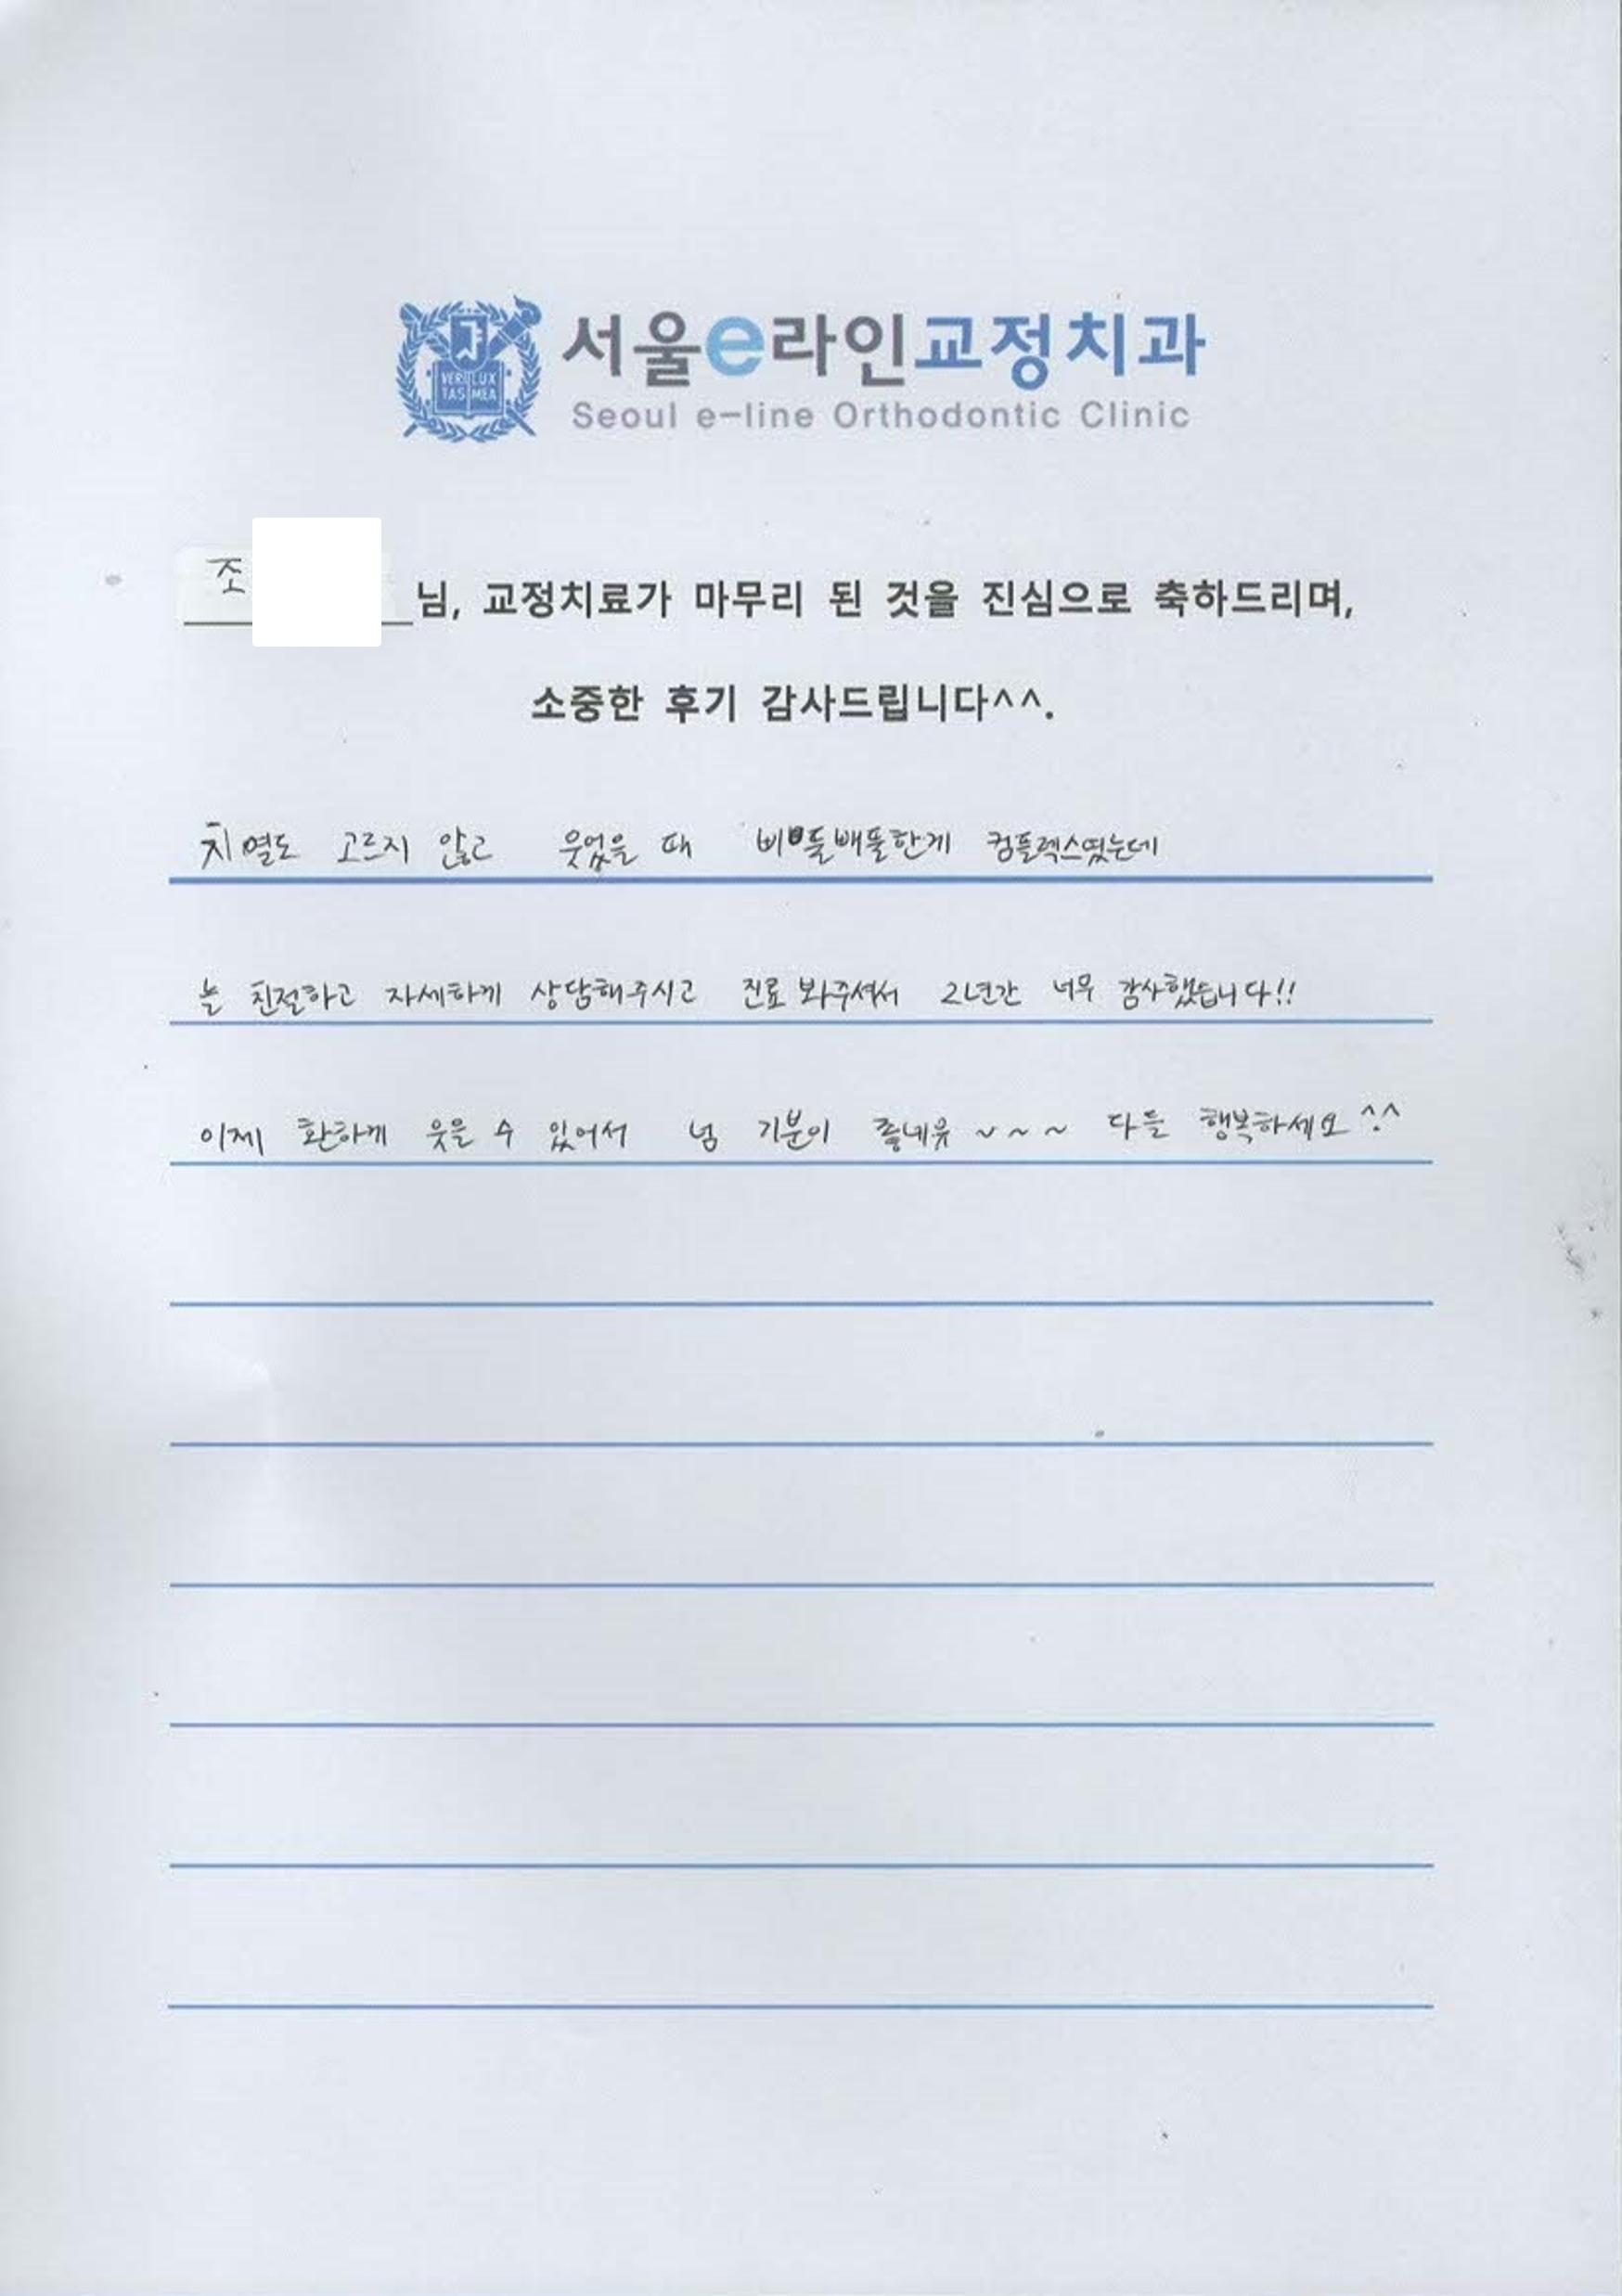 서울e라인교정치과
VERI LUX
TAS MEA
Seoul e-line Orthodontic Clinic
조 님, 교정치료가 마무리 된 것을 진심으로 축하드리며,
소중한 후기 감사드립니다^^.
치열도 고르지 않고 웃었을 때 삐뚤빼뚤한게 컴플렉스였는데
늘 친절하고 자세하게 상담해주시고 진료 봐주셔서 2년간 너무 감사했습니다!!
이제 환하게 웃을 수 있어서 넘 기분이 좋네유 ~ ~ ~ 다들 행복하세요 ^^